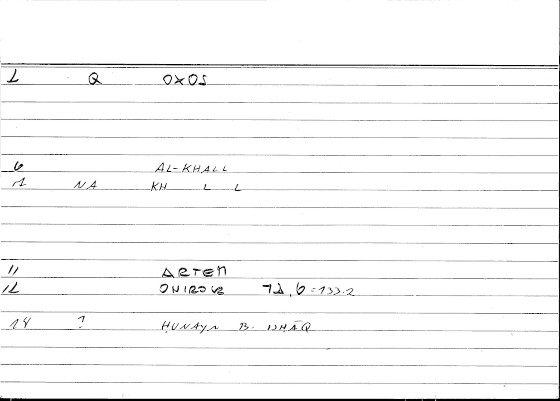 1 Q OXOS
6 AL-KHALL
1 NA KH L L
11 ARTEM
12 ONIROK 72,6=133.2
14 ? HUNAYN B. ISHĀQ